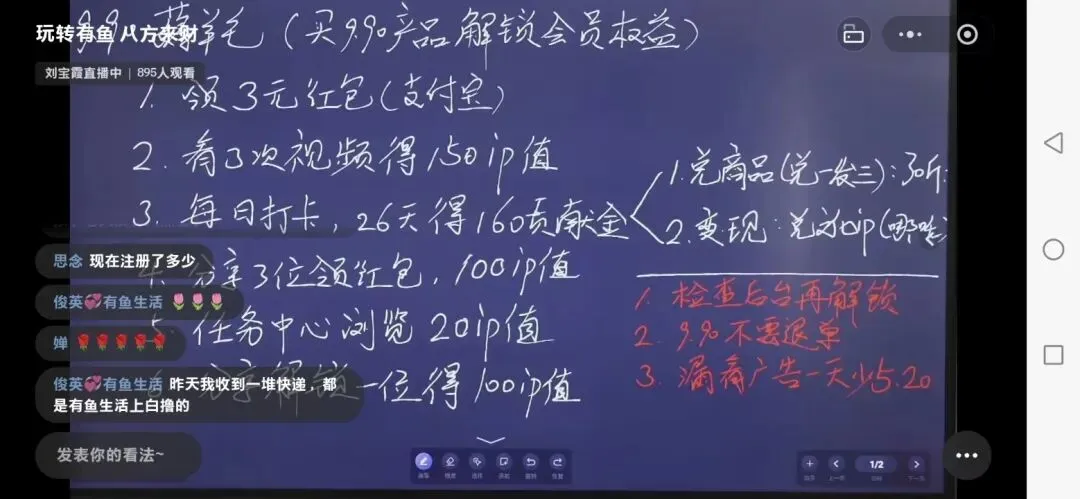 玩转有鱼 八方来财
9.9 薅羊毛（买9.90产品解锁会员权益）
刘宝霞直播中 | 895人观看
1. 领3元红包(支付宝)
2. 看3次视频得150ip值
3. 每日打卡，26天得160贡献金
1.兑商品(兑一发三):
2.变现:
4. 分享3位领红包，100ip值
5. 任务中心浏览 20ip值
6. 分享解锁一位得100ip值
1. 检查后台再解锁
2. 9.90不要退单
3. 漏看广告一天少5.20
思念 现在注册了多少
俊英💞有鱼生活 🌷🌷🌷
婵 🌹🌹🌹🌹🌹
俊英💞有鱼生活 昨天我收到一堆快递，都
是有鱼生活上白撸的
发表你的看法~
1/2